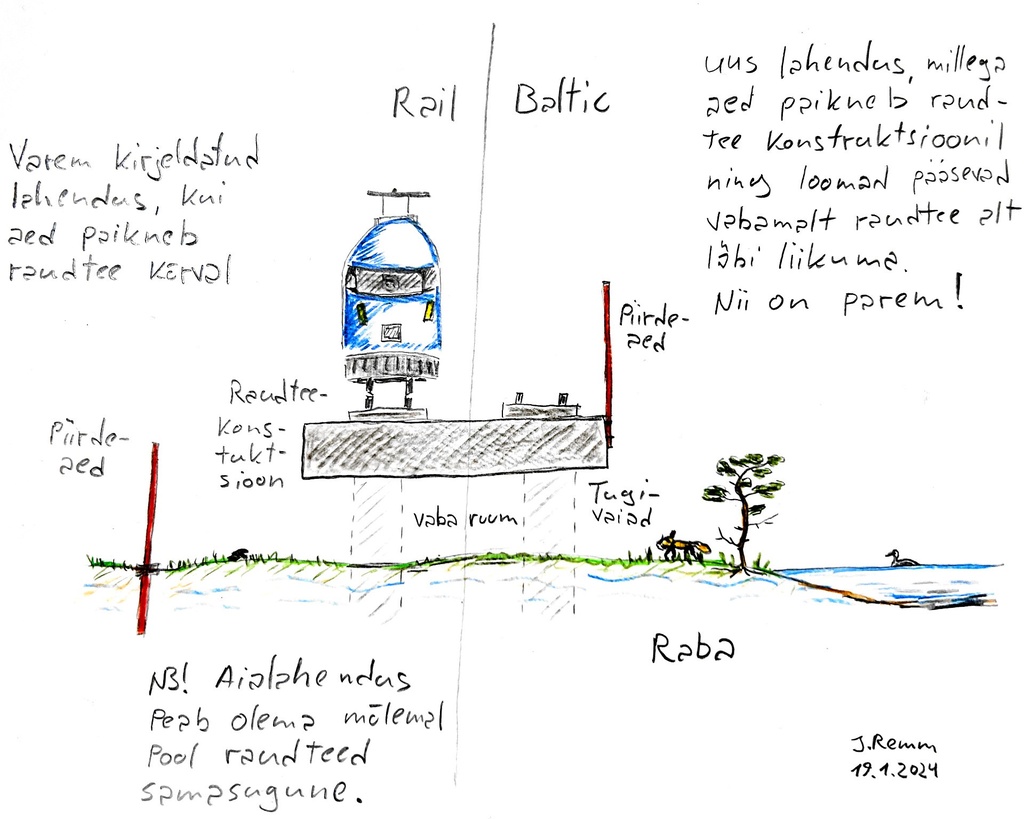 Rail Baltic
Varem kirjeldatud
lahendus, kui
aed paikneb
raudtee kõrval
uus lahendus, millega
aed paikneb raud-
tee konstruktsioonil
ning loomad pääsevad
vabamalt raudtee alt
läbi liikuma.
Nii on parem!
Piirde-
aed
Raudtee-
Kons-
tukt-
sioon
Piirde-
aed
vaba ruum
Tugi-
vaiad
Raba
NB! Aialahendus
Peab olema mõlemal
Pool raudteed
samasugune.
J. Remm
19.1.2024